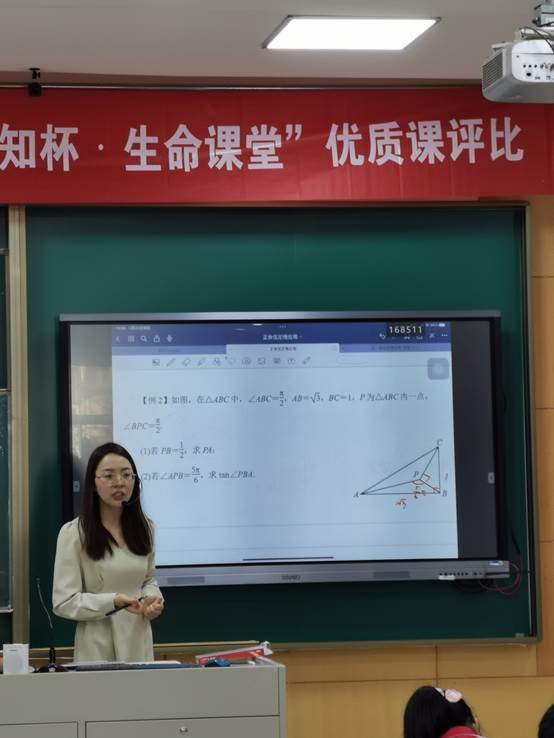 知杯·生命课堂”优质课评比
168511
正余弦定理应用
正余弦定理应用
【例2】如图，在△ABC中，∠ABC=π/2，AB=√3，BC=1，P为△ABC内一点，
∠BPC=π/2.
(1)若PB=1/2，求PA；
(2)若∠APB=5π/6，求tan∠PBA.
C
P
1
A
B
√3